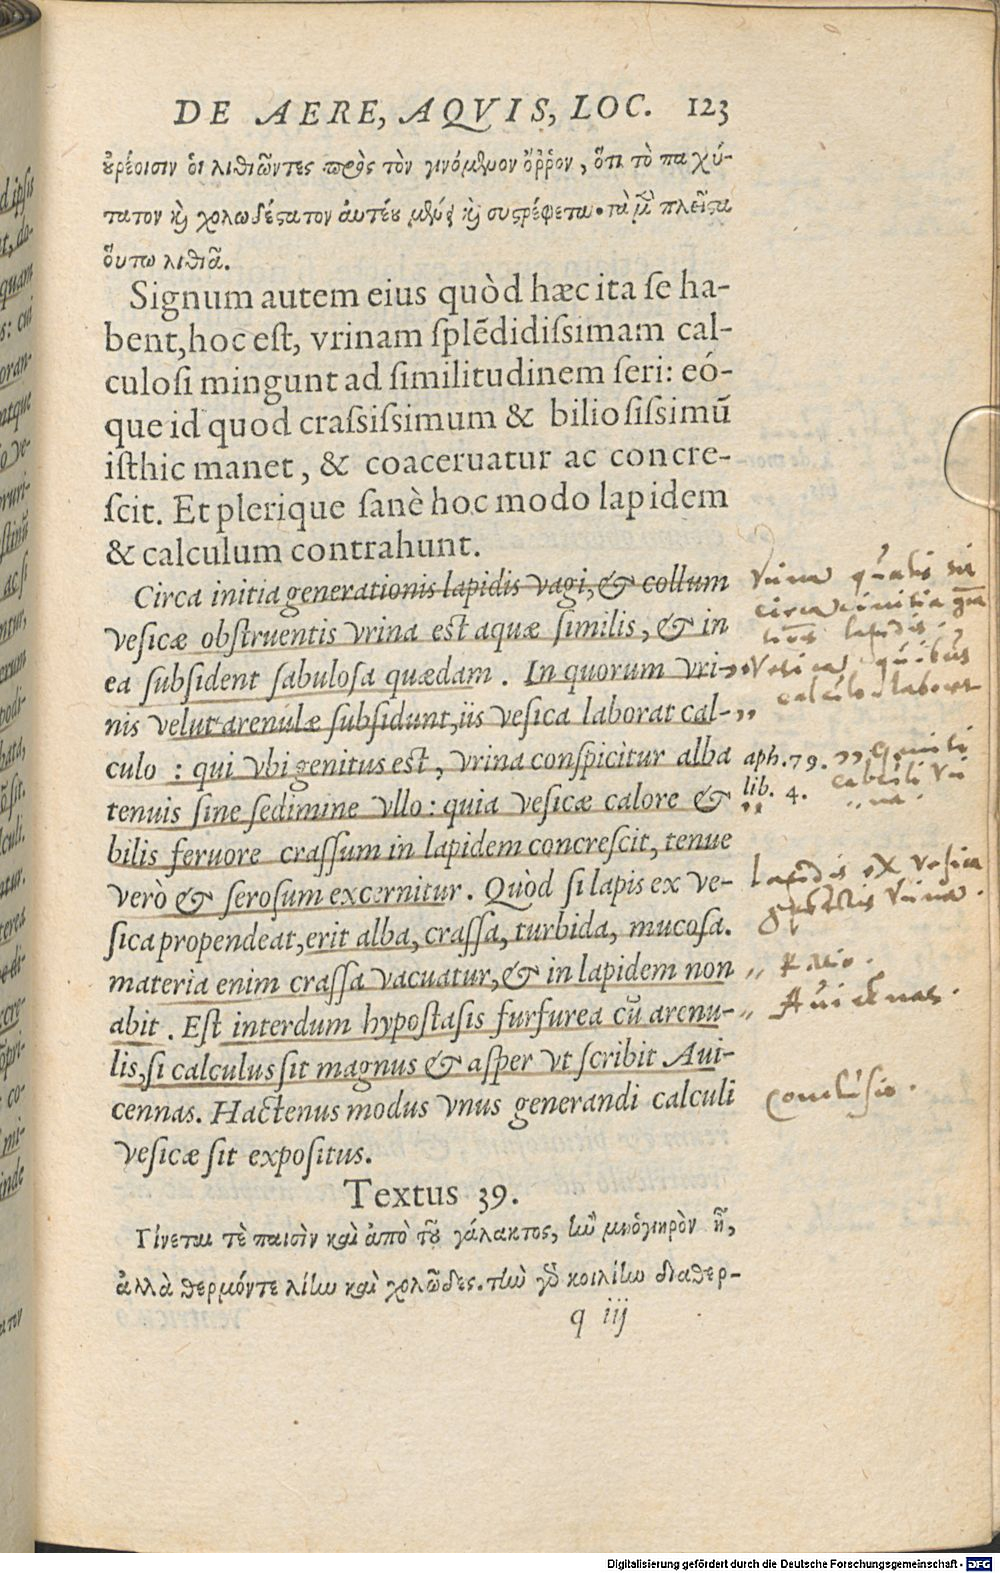 DE AERE, AQVIS, LOC. 123
ȣρέοισιν ὁι λιθιῶντες πρὸς τὸν γινόμενον ὄῤῥον, ὅτι τὸ παχύ-
τατον καὶ χολωδέςατον ἀυτέȣ μένει καὶ συςρέφεται· τὰ μὲν πλεῖςα
ὅυτω λιθιᾶ.
Signum autem eius quòd hæc ita se ha-
bent, hoc est, vrinam splēdidissimam cal-
culosi mingunt ad similitudinem seri: eó-
que id quod crassissimum & biliosissimū
isthic manet, & coaceruatur ac concre-
scit. Et plerique sanè hoc modo lapidem
& calculum contrahunt.
Circa initia generationis lapidis vagi, & collum
vesicæ obstruentis vrina est aquæ similis, & in
ea subsident sabulosa quædam. In quorum vri-,,
nis velut arenulæ subsidunt, iis vesica laborat cal-,,
culo : qui vbi genitus est, vrina conspicitur alba
tenuis sine sedimine vllo: quia vesicæ calore &
bilis feruore crassum in lapidem concrescit, tenue
verò & serosum excernitur. Quòd si lapis ex ve-
sica propendeat, erit alba, crassa, turbida, mucosa.
materia enim crassa vacuatur, & in lapidem non
abit. Est interdum hypostasis furfurea cū arenu-
lis, si calculus sit magnus & asper vt scribit Aui-
cennas. Hactenus modus vnus generandi calculi
vesicæ sit expositus.
aph. 79.
lib. 4.
circa initia
lapidis.
Vesica quibus
calculo laboret
lapidis ex vesica
Ratio.
Auicēnas.
Conclusio.
Textus 39.
Γίνεται τὲ παισὶν καὶ ἀπὸ τȣ͂ γάλακτος, ἢν μὴ ὑγιηρὸν ᾖ,
ἀλλὰ θερμόν τε λίην καὶ χολῶδες. τὴν γὰρ κοιλίην διαθερ-
q iij
Digitalisierung gefördert durch die Deutsche Forschungsgemeinschaft - DFG